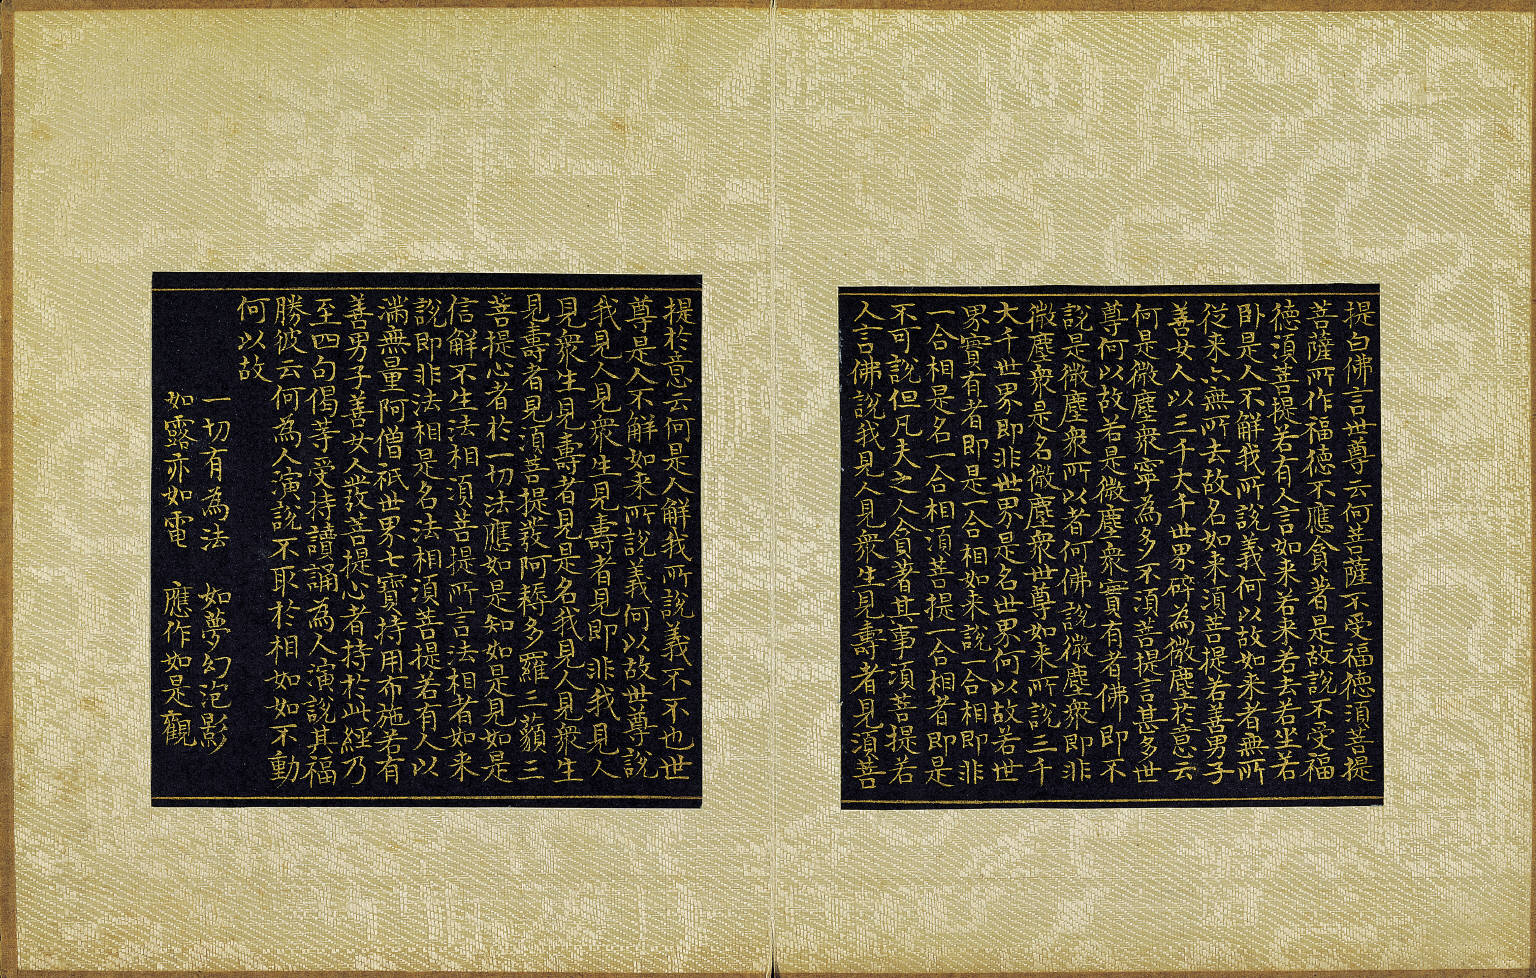 提白佛言世尊云何菩薩不受福德須菩提
菩薩所作福德不應貪著是故說不受福
德須菩提若有人言如来若来若去若坐若
卧是人不解我所說義何以故如来者無所
從来亦無所去故名如来須菩提若善男子
善女人以三千大千世界碎為微塵於意云
何是微塵衆寧為多不須菩提言甚多世
尊何以故若是微塵衆實有者佛即不
說是微塵衆所以者何佛說微塵衆即非
微塵衆是名微塵衆世尊如来所說三千
大千世界即非世界是名世界何以故若世
界實有者即是一合相如来說一合相即非
一合相是名一合相須菩提一合相者即是
不可說但凡夫之人貪著其事須菩提若
人言佛說我見人見衆生見壽者見須菩
提於意云何是人解我所說義不不也世
尊是人不解如来所說義何以故世尊說
我見人見衆生見壽者見即非我見人
見衆生見壽者見是名我見人見衆生
見壽者見須菩提發阿耨多羅三藐三
菩提心者於一切法應如是知如是見如是
信解不生法相須菩提所言法相者如来
說即非法相是名法相須菩提若有人以
滿無量阿僧祇世界七寶持用布施若有
善男子善女人發菩提心者持於此經乃
至四句偈等受持讀誦為人演說其福
勝彼云何為人演說不取於相如如不動
何以故
一切有為法　如夢幻泡影
如露亦如電　應作如是觀